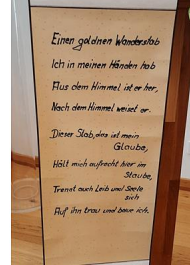 Einen goldnen Wanderstab
Ich in meinen Händen hab
Aus dem Himmel ist er her,
Nach dem Himmel weiset er.
Dieser Stab, das ist mein
Glaube,
Hält mich aufrecht hier im
Staube,
Trennt auch Leib und Seele
sich
Auf ihn trau und baue ich.